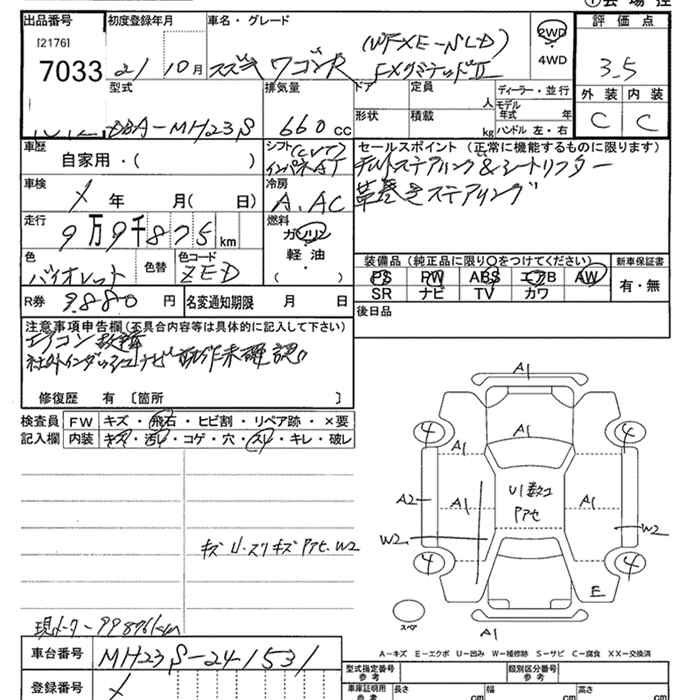 出品番号 初度登録年月 車名・グレード 2WD 評価点
[2176] 4WD
7033 21 10月 スズキ ワゴンR FXリミテッドⅡ 3.5
型式 排気量 ドア 定員 人 ディーラー・並行 外装 内装
DBA-MH23S 660cc 形状 積載 kg モデル年式 年 C C
ハンドル 左・右
車歴 シフト(CVT) セールスポイント(正常に機能するものに限ります)
自家用・( ) インパネAT チルトステアリング&シートリフター
車検 冷房 革巻きステアリング
年 月( 日) A.AC
走行 9万9千875km 燃料
ガソリン
色 色替 色コード 軽油 装備品(純正品に限り○をつけてください) 新車保証書
バイオレット ZED ・( ) PS PW ABS エアB AW 有・無
SR ナビ TV カワ
R券 9880円 名変通知期限 月 日 後日品
注意事項申告欄(不具合内容等は具体的に記入して下さい)
エアコン故障
社外インダッシュナビ動作未確認。
修復歴 有 〔箇所 〕
検査員 FW キズ・飛石・ヒビ割・リペア跡・×要
記入欄 内装 キズ・汚レ・コゲ・穴・スレ・キレ・破レ
A1
4 A1 4
A1
A2 A1 U1数コ A1
アセ W2
W2
4 4
E
キズ U.スリキズ アセ.W2
スペア
A1
現メーター 99876km
A-キズ E-エクボ U-凹み W-補修跡 S-サビ C-腐食 XX-交換済
車台番号 MH23S-241531
型式指定番号 参考 類別区分番号 参考
登録番号
車庫証明用 参考 長さ cm 幅 cm 高さ cm